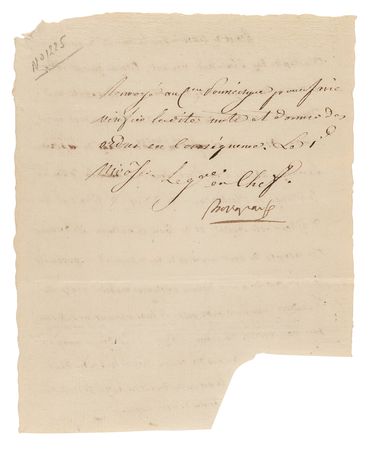 N° 1225
Renvoyé au Cen Poussielgue pour faire
vérifier ladite note et donner des
ordres en Conséquence. Le 1er
Nivôse.
Le gal en Chef.
Bonaparte